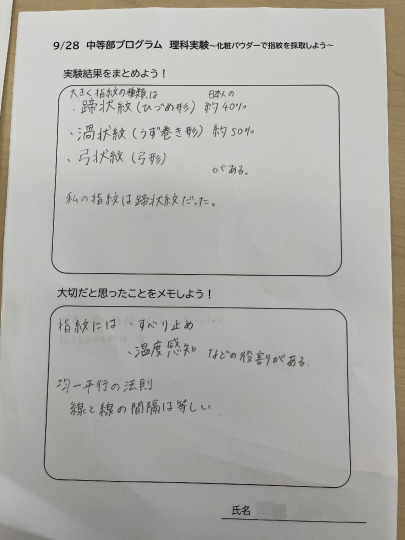 9/28 中等部プログラム 理科実験～化粧パウダーで指紋を採取しよう～
実験結果をまとめよう！
大きく指紋の種類は 日本人の
・蹄状紋(ひづめ形) 約40%
・渦状紋(うず巻き形) 約50%
・弓状紋(弓形)
がある。
私の指紋は蹄状紋だった。
大切だと思ったことをメモしよう！
指紋には ・すべり止め
・温度感知 などの役割がある。
均一平行の法則
線と線の間隔は等しい
氏名